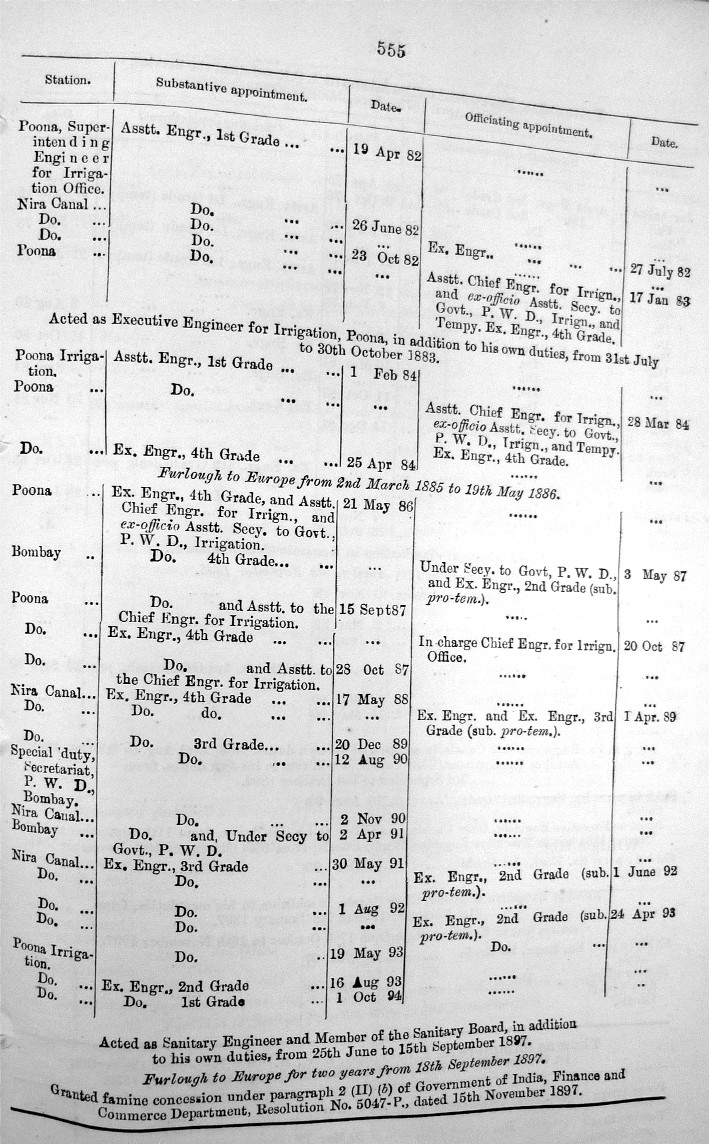 555
Station. Substantive appointment. Date. Officiating appointment. Date.
Poona, Super- Asstt. Engr., 1st Grade ... ... 19 Apr 82 ...... ...
intending
Engineer
for Irriga-
tion Office.
Nira Canal ... Do. ... ...
Do. ... Do. ... ... 26 June 82 ......
Do. ... Do. ... ... 23 Oct 82 Ex. Engr.. ... ... ... 27 July 82
Poona ... Do. ... ... ... Asstt. Chief Engr. for Irrign., 17 Jan 83
and ex-officio Asstt. Secy. to
Govt., P. W. D., Irrign., and
Tempy. Ex. Engr., 4th Grade.
Acted as Executive Engineer for Irrigation, Poona, in addition to his own duties, from 31st July
to 30th October 1883.
Poona Irriga- Asstt. Engr., 1st Grade ... ... 1 Feb 84 ......
tion.
Poona ... Do. ... ... ... Asstt. Chief Engr. for Irrign., 28 Mar 84
ex-officio Asstt. Secy. to Govt.,
P. W. D., Irrign., and Tempy.
Ex. Engr., 4th Grade.
Do. ... Ex. Engr., 4th Grade ... ... 25 Apr 84 ...... ...
Furlough to Europe from 2nd March 1885 to 19th May 1886.
Poona .. Ex. Engr., 4th Grade, and Asstt. 21 May 86 ...... ...
Chief Engr. for Irrign., and
ex-officio Asstt. Secy. to Govt.,
P. W. D., Irrigation.
Bombay .. Do. 4th Grade... ... ... Under Secy. to Govt, P. W. D., 3 May 87
and Ex. Engr., 2nd Grade (sub.
pro-tem.).
Poona ... Do. and Asstt. to the 15 Sept 87 ..... ...
Chief Engr. for Irrigation.
Do. ... Ex. Engr., 4th Grade ... ... ... In charge Chief Engr. for Irrign. 20 Oct 87
Office.
Do. ... Do. and Asstt. to 28 Oct 87 ...... ...
the Chief Engr. for Irrigation.
Nira Canal... Ex. Engr., 4th Grade ... ... 17 May 88 ...... ...
Do. ... Do. do. ... ... ... Ex. Engr. and Ex. Engr., 3rd 1 Apr. 89
Grade (sub. pro-tem.).
Do. ... Do. 3rd Grade... ... 20 Dec 89 ...... ...
Special duty, Do. .. ... 12 Aug 90 ...... ...
Secretariat,
P. W. D.,
Bombay.
Nira Canal... Do. ... ... 2 Nov 90 ...... ...
Bombay ... Do. and, Under Secy to 2 Apr 91 ...... ...
Govt., P. W. D.
Nira Canal... Ex. Engr., 3rd Grade .. 30 May 91 ...... ...
Do. ... Do. ... ... Ex. Engr., 2nd Grade (sub. 1 June 92
pro-tem.).
Do. ... Do. ... 1 Aug 92 ......
Do. ... Do. ... ... Ex. Engr., 2nd Grade (sub. 24 Apr 93
pro-tem.).
Poona Irriga- Do. .. 19 May 93 Do. ... ...
tion.
Do. ... Ex. Engr., 2nd Grade ... 16 Aug 93 ...... ...
Do. ... Do. 1st Grade ... 1 Oct 94 ...... ..
Acted as Sanitary Engineer and Member of the Sanitary Board, in addition
to his own duties, from 25th June to 15th September 1897.
Furlough to Europe for two years from 18th September 1897.
Granted famine concession under paragraph 2 (II) (b) of Government of India, Finance and
Commerce Department, Resolution No. 5047-P., dated 15th November 1897.